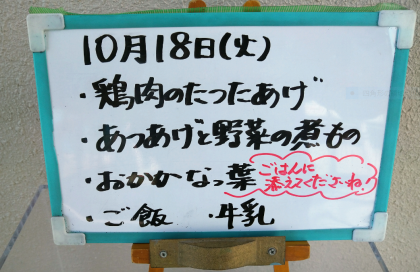 10月18日(火)
・鶏肉のたったあげ
・あつあげと野菜の煮もの
・おかかなっ葉
ごはんに
添えてくださいね!
・ご飯 ・牛乳